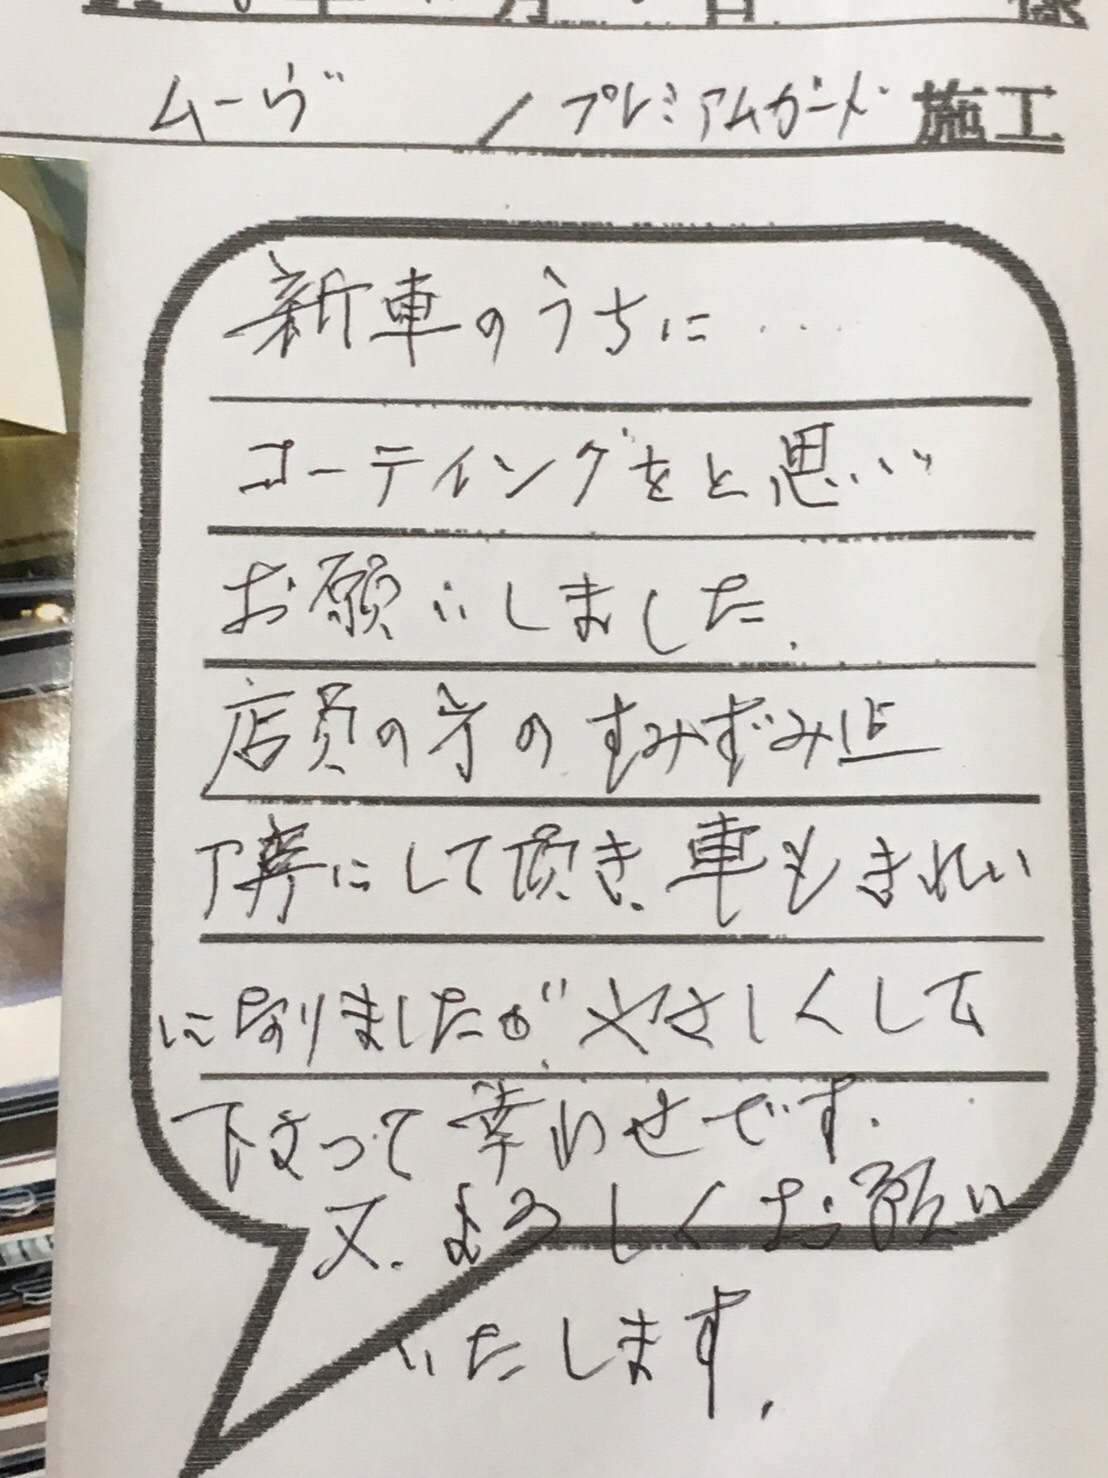 年 月 日 様
ムーヴ / プレミアムガード 施工
新車のうちに....
コーティングをと思い
お願いしました.
店員の方のすみずみ迄
丁寧にして頂き、車もきれい
になりましたが、やさしくして
下さって幸わせです.
又、よろしくお願い
いたします.